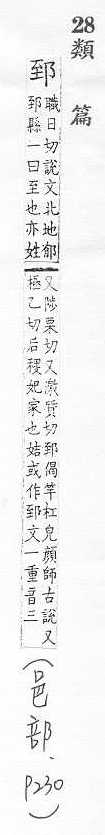 28類篇
郅
職日切說文北地郁
郅縣一曰至也亦姓
又陟栗切又激質切郅偈竿杠皃顏師古說又
極乙切后稷妃家也姞或作郅文一重音三
(邑部、P230)